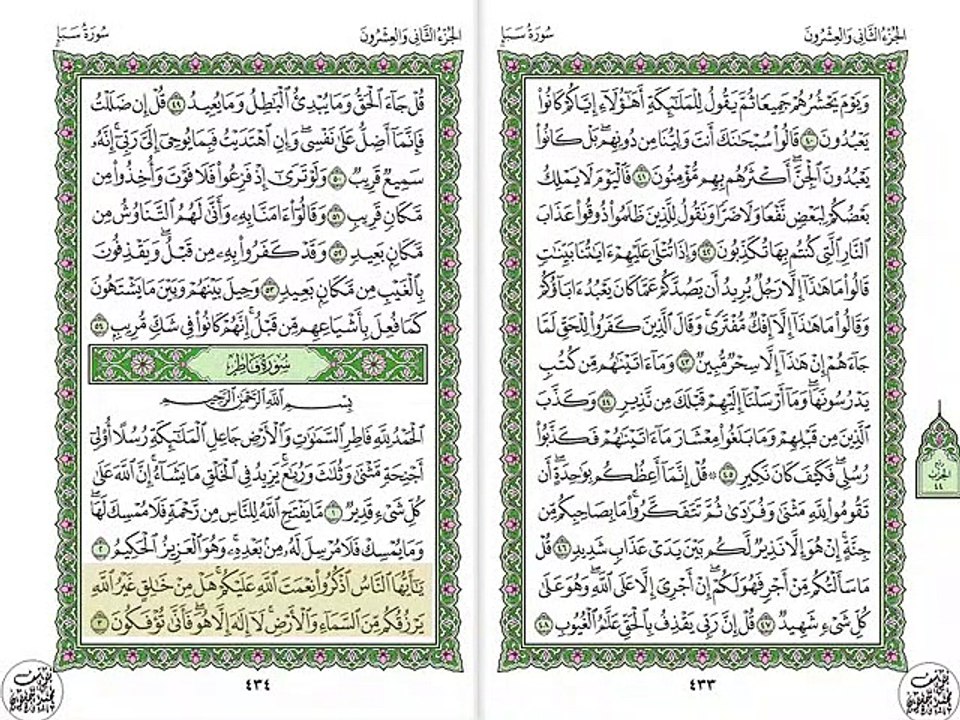 الجزء الثاني والعشرون
سورة سبأ
وَيَوْمَ يَحْشُرُهُمْ جَمِيعًا ثُمَّ يَقُولُ لِلْمَلَٰٓئِكَةِ أَهَٰٓؤُلَآءِ إِيَّاكُمْ كَانُوا۟
يَعْبُدُونَ ٤٠ قَالُوا۟ سُبْحَٰنَكَ أَنتَ وَلِيُّنَا مِن دُونِهِم ۖ بَلْ كَانُوا۟
يَعْبُدُونَ ٱلْجِنَّ ۖ أَكْثَرُهُم بِهِم مُّؤْمِنُونَ ٤١ فَٱلْيَوْمَ لَا يَمْلِكُ
بَعْضُكُمْ لِبَعْضٍ نَّفْعًا وَلَا ضَرًّا وَنَقُولُ لِلَّذِينَ ظَلَمُوا۟ ذُوقُوا۟ عَذَابَ
ٱلنَّارِ ٱلَّتِى كُنتُم بِهَا تُكَذِّبُونَ ٤٢ وَإِذَا تُتْلَىٰ عَلَيْهِمْ ءَايَٰتُنَا بَيِّنَٰتٍ
قَالُوا۟ مَا هَٰذَآ إِلَّا رَجُلٌ يُرِيدُ أَن يَصُدَّكُمْ عَمَّا كَانَ يَعْبُدُ ءَابَآؤُكُمْ
وَقَالُوا۟ مَا هَٰذَآ إِلَّآ إِفْكٌ مُّفْتَرًى ۚ وَقَالَ ٱلَّذِينَ كَفَرُوا۟ لِلْحَقِّ لَمَّا
جَآءَهُمْ إِنْ هَٰذَآ إِلَّا سِحْرٌ مُّبِينٌ ٤٣ وَمَآ ءَاتَيْنَٰهُم مِّن كُتُبٍ
يَدْرُسُونَهَا ۖ وَمَآ أَرْسَلْنَآ إِلَيْهِمْ قَبْلَكَ مِن نَّذِيرٍ ٤٤ وَكَذَّبَ
ٱلَّذِينَ مِن قَبْلِهِمْ وَمَا بَلَغُوا۟ مِعْشَارَ مَآ ءَاتَيْنَٰهُمْ فَكَذَّبُوا۟
رُسُلِى ۖ فَكَيْفَ كَانَ نَكِيرِ ٤٥ ۞ قُلْ إِنَّمَآ أَعِظُكُم بِوَٰحِدَةٍ ۖ أَن
تَقُومُوا۟ لِلَّهِ مَثْنَىٰ وَفُرَٰدَىٰ ثُمَّ تَتَفَكَّرُوا۟ ۚ مَا بِصَاحِبِكُم مِّن
جِنَّةٍ ۚ إِنْ هُوَ إِلَّا نَذِيرٌ لَّكُم بَيْنَ يَدَىْ عَذَابٍ شَدِيدٍ ٤٦ قُلْ
مَا سَأَلْتُكُم مِّنْ أَجْرٍ فَهُوَ لَكُمْ ۖ إِنْ أَجْرِىَ إِلَّا عَلَى ٱللَّهِ ۖ وَهُوَ عَلَىٰ
كُلِّ شَىْءٍ شَهِيدٌ ٤٧ قُلْ إِنَّ رَبِّى يَقْذِفُ بِٱلْحَقِّ عَلَّٰمُ ٱلْغُيُوبِ ٤٨
٤٣٣
الحزب
٤٤
الجزء الثاني والعشرون
سورة سبأ
قُلْ جَآءَ ٱلْحَقُّ وَمَا يُبْدِئُ ٱلْبَٰطِلُ وَمَا يُعِيدُ ٤٩ قُلْ إِن ضَلَلْتُ
فَإِنَّمَآ أَضِلُّ عَلَىٰ نَفْسِى ۖ وَإِنِ ٱهْتَدَيْتُ فَبِمَا يُوحِىٓ إِلَىَّ رَبِّىٓ ۚ إِنَّهُۥ
سَمِيعٌ قَرِيبٌ ٥٠ وَلَوْ تَرَىٰٓ إِذْ فَزِعُوا۟ فَلَا فَوْتَ وَأُخِذُوا۟ مِن
مَّكَانٍ قَرِيبٍ ٥١ وَقَالُوٓا۟ ءَامَنَّا بِهِۦ وَأَنَّىٰ لَهُمُ ٱلتَّنَاوُشُ مِن
مَّكَانٍۭ بَعِيدٍ ٥٢ وَقَدْ كَفَرُوا۟ بِهِۦ مِن قَبْلُ ۖ وَيَقْذِفُونَ
بِٱلْغَيْبِ مِن مَّكَانٍۭ بَعِيدٍ ٥٣ وَحِيلَ بَيْنَهُمْ وَبَيْنَ مَا يَشْتَهُونَ
كَمَا فُعِلَ بِأَشْيَاعِهِم مِّن قَبْلُ ۚ إِنَّهُمْ كَانُوا۟ فِى شَكٍّ مُّرِيبٍۭ ٥٤
سورة فاطر
بِسْمِ ٱللَّهِ ٱلرَّحْمَٰنِ ٱلرَّحِيمِ
ٱلْحَمْدُ لِلَّهِ فَاطِرِ ٱلسَّمَٰوَٰتِ وَٱلْأَرْضِ جَاعِلِ ٱلْمَلَٰٓئِكَةِ رُسُلًا أُو۟لِىٓ
أَجْنِحَةٍ مَّثْنَىٰ وَثُلَٰثَ وَرُبَٰعَ ۚ يَزِيدُ فِى ٱلْخَلْقِ مَا يَشَآءُ ۚ إِنَّ ٱللَّهَ عَلَىٰ
كُلِّ شَىْءٍ قَدِيرٌ ١ مَّا يَفْتَحِ ٱللَّهُ لِلنَّاسِ مِن رَّحْمَةٍ فَلَا مُمْسِكَ لَهَا ۖ
وَمَا يُمْسِكْ فَلَا مُرْسِلَ لَهُۥ مِنۢ بَعْدِهِۦ ۚ وَهُوَ ٱلْعَزِيزُ ٱلْحَكِيمُ ٢
يَٰٓأَيُّهَا ٱلنَّاسُ ٱذْكُرُوا۟ نِعْمَتَ ٱللَّهِ عَلَيْكُمْ ۚ هَلْ مِنْ خَٰلِقٍ غَيْرُ ٱللَّهِ
يَرْزُقُكُم مِّنَ ٱلسَّمَآءِ وَٱلْأَرْضِ ۚ لَآ إِلَٰهَ إِلَّا هُوَ ۖ فَأَنَّىٰ تُؤْفَكُونَ ٣
٤٣٤